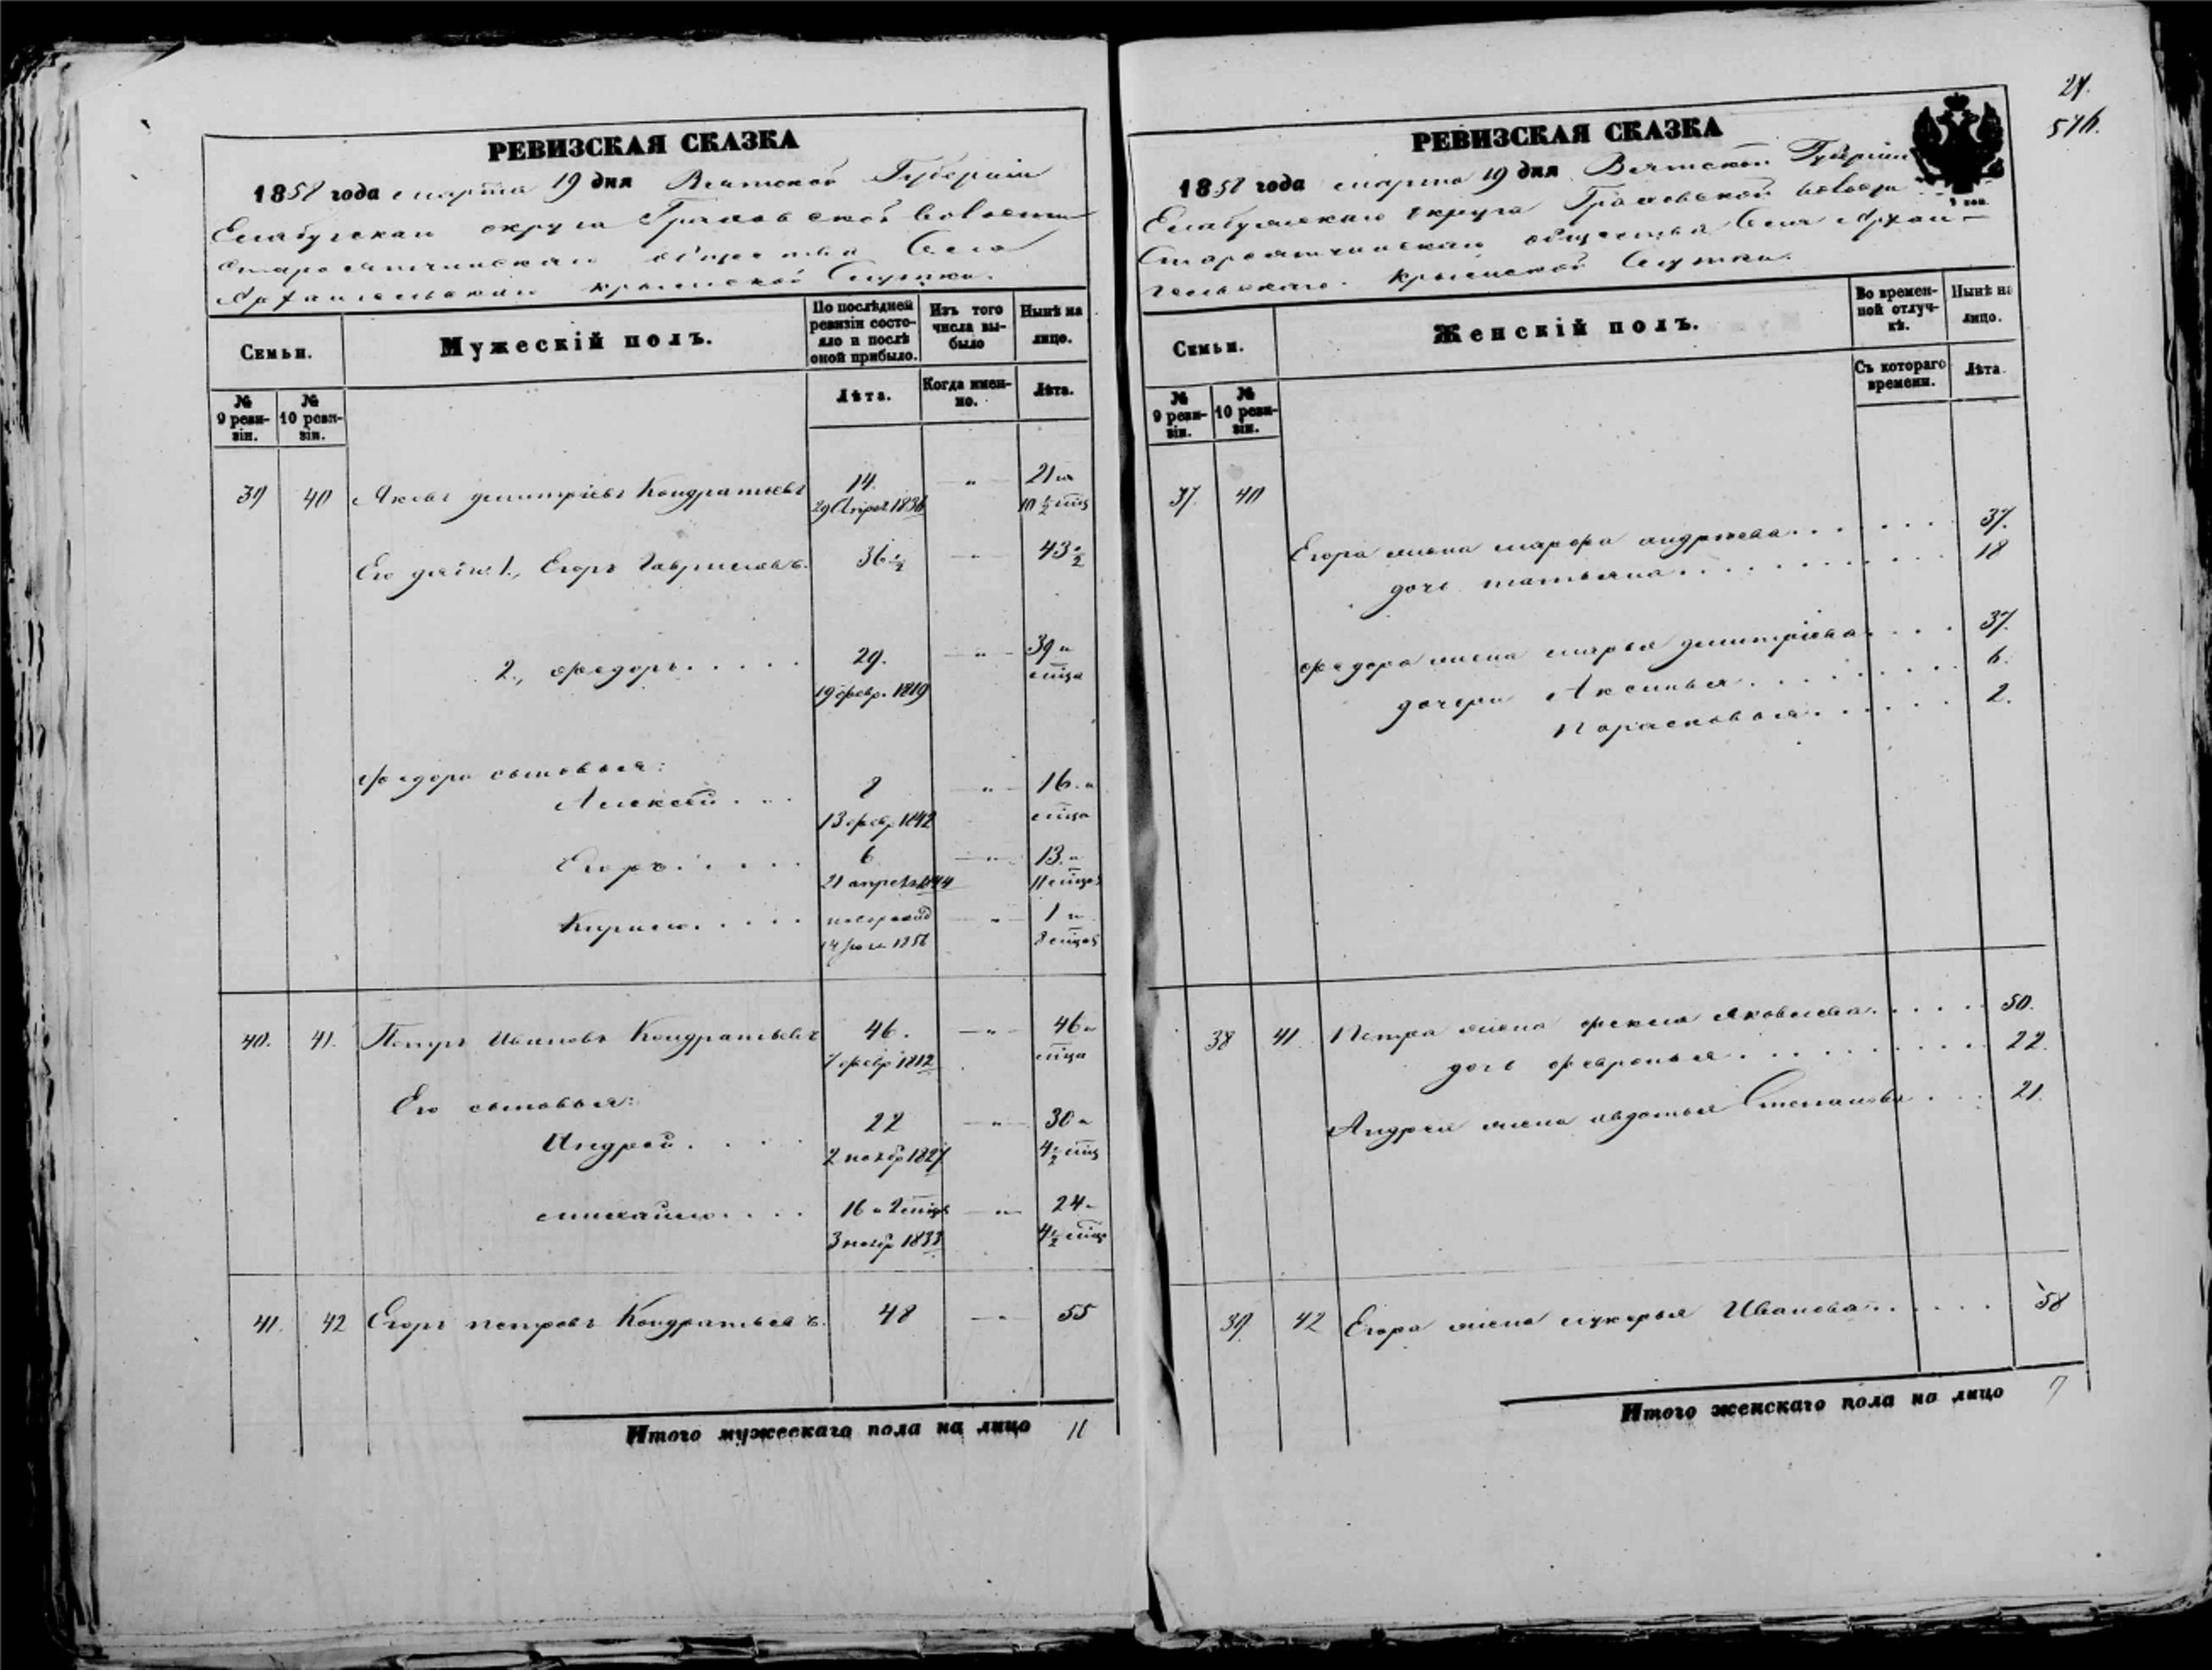 РЕВИЗСКАЯ СКАЗКА
1858 года марта 19 дня Вятской Губернiи
Елабугскаго округа Граховской Волости
Староятчинскаго общества Села
Архангельскаго Крымской Слудки.
Семьи.
Мужескій полъ.
По послѣдней ревизіи состояло и послѣ оной прибыло.
Изъ того числа выбыло
Нынѣ на лицо.
№ 9 ревизіи.
№ 10 ревизіи.
Лѣта.
Когда именно.
Лѣта.
39 40 Яковъ дмитріевъ Кондратьевъ 14. „ 21 и
29 Апрел. 1836 10 ½ мцъ
Его дяди: 1., Егоръ Гавриловъ. 36 ½ „ 43 ½
2., федоръ..... 29. „ 39 и
19 февр. 1819 мца
федора сыновья:
Алексей... 8 „ 16. и
13 февр 1842 мца
Егоръ..... 6 „ 13. и
21 апреля 1844 11 мцов
Кирило..... „ 1 и
1856 8 мцов
40. 41. Петръ Ивановъ Кондратьевъ 46. „ 46 и
7 февр 1812 мца
Его сыновья:
Андрей.... 22 „ 30 и
2 нояб 1827 4 ½ мцъ
михайло.... 16 и 2 мцъ „ 24 и
3 нояб 1833 4 ½ мцъ
41. 42 Егоръ петровъ Кондратьевъ. 48 „ 55
Итого мужескаго пола на лицо 11
24.
576.
РЕВИЗСКАЯ СКАЗКА
1858 года марта 19 дня Вятской Губерніи
Елабугскаго округа Граховской волости
Староятчинскаго общества Села Архан-
гельскаго Крымской Слудки.
Семьи.
Женскій полъ.
Во временной отлучкѣ.
Нынѣ на лицо.
№ 9 ревизіи.
№ 10 ревизіи.
Съ котораго времени.
Лѣта.
37. 40
Егора жена марфа андреева...... 37.
дочь татьяна.......... 18
федора жена марья дмитріева.... 37.
дочери Аксинья........ 6.
Парасковья...... 2.
38 41 Петра жена фекла яковлева..... 50.
дочь февронья......... 22.
Андрея жена авдотья Степанова... 21.
39. 42 Егора жена лукерья Иванова...... 58
Итого женскаго пола на лицо